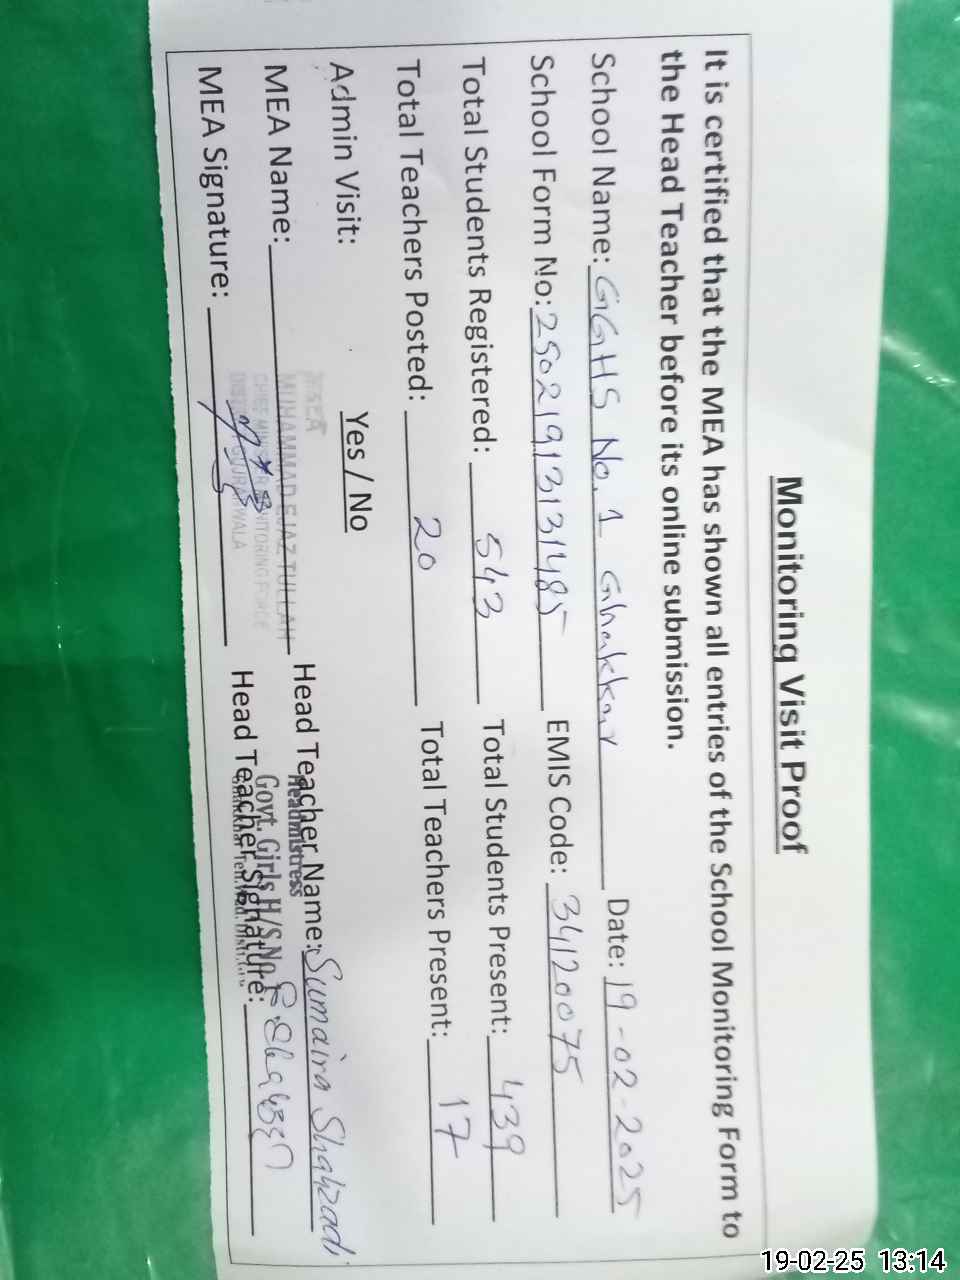 Monitoring Visit Proof
It is certified that the MEA has shown all entries of the School Monitoring Form to
the Head Teacher before its online submission.
School Name: GGHS No. 1 Ghakkar Date: 19-02-2025
School Form No: 25021913131485 EMIS Code: 34120075
Total Students Registered: 543 Total Students Present: 439
Total Teachers Posted: 20 Total Teachers Present: 17
Admin Visit: Yes / No
MEA Name: MUHAMMAD EJAZ TULLAH Head Teacher Name: Sumaira Shahzadi
CHIEF MINISTER MONITORING FORCE
GUJRANWALA
MEA Signature: Head Teacher Signature:
Headmistress
Govt. Girls H/S No. 1
19-02-25 13:14